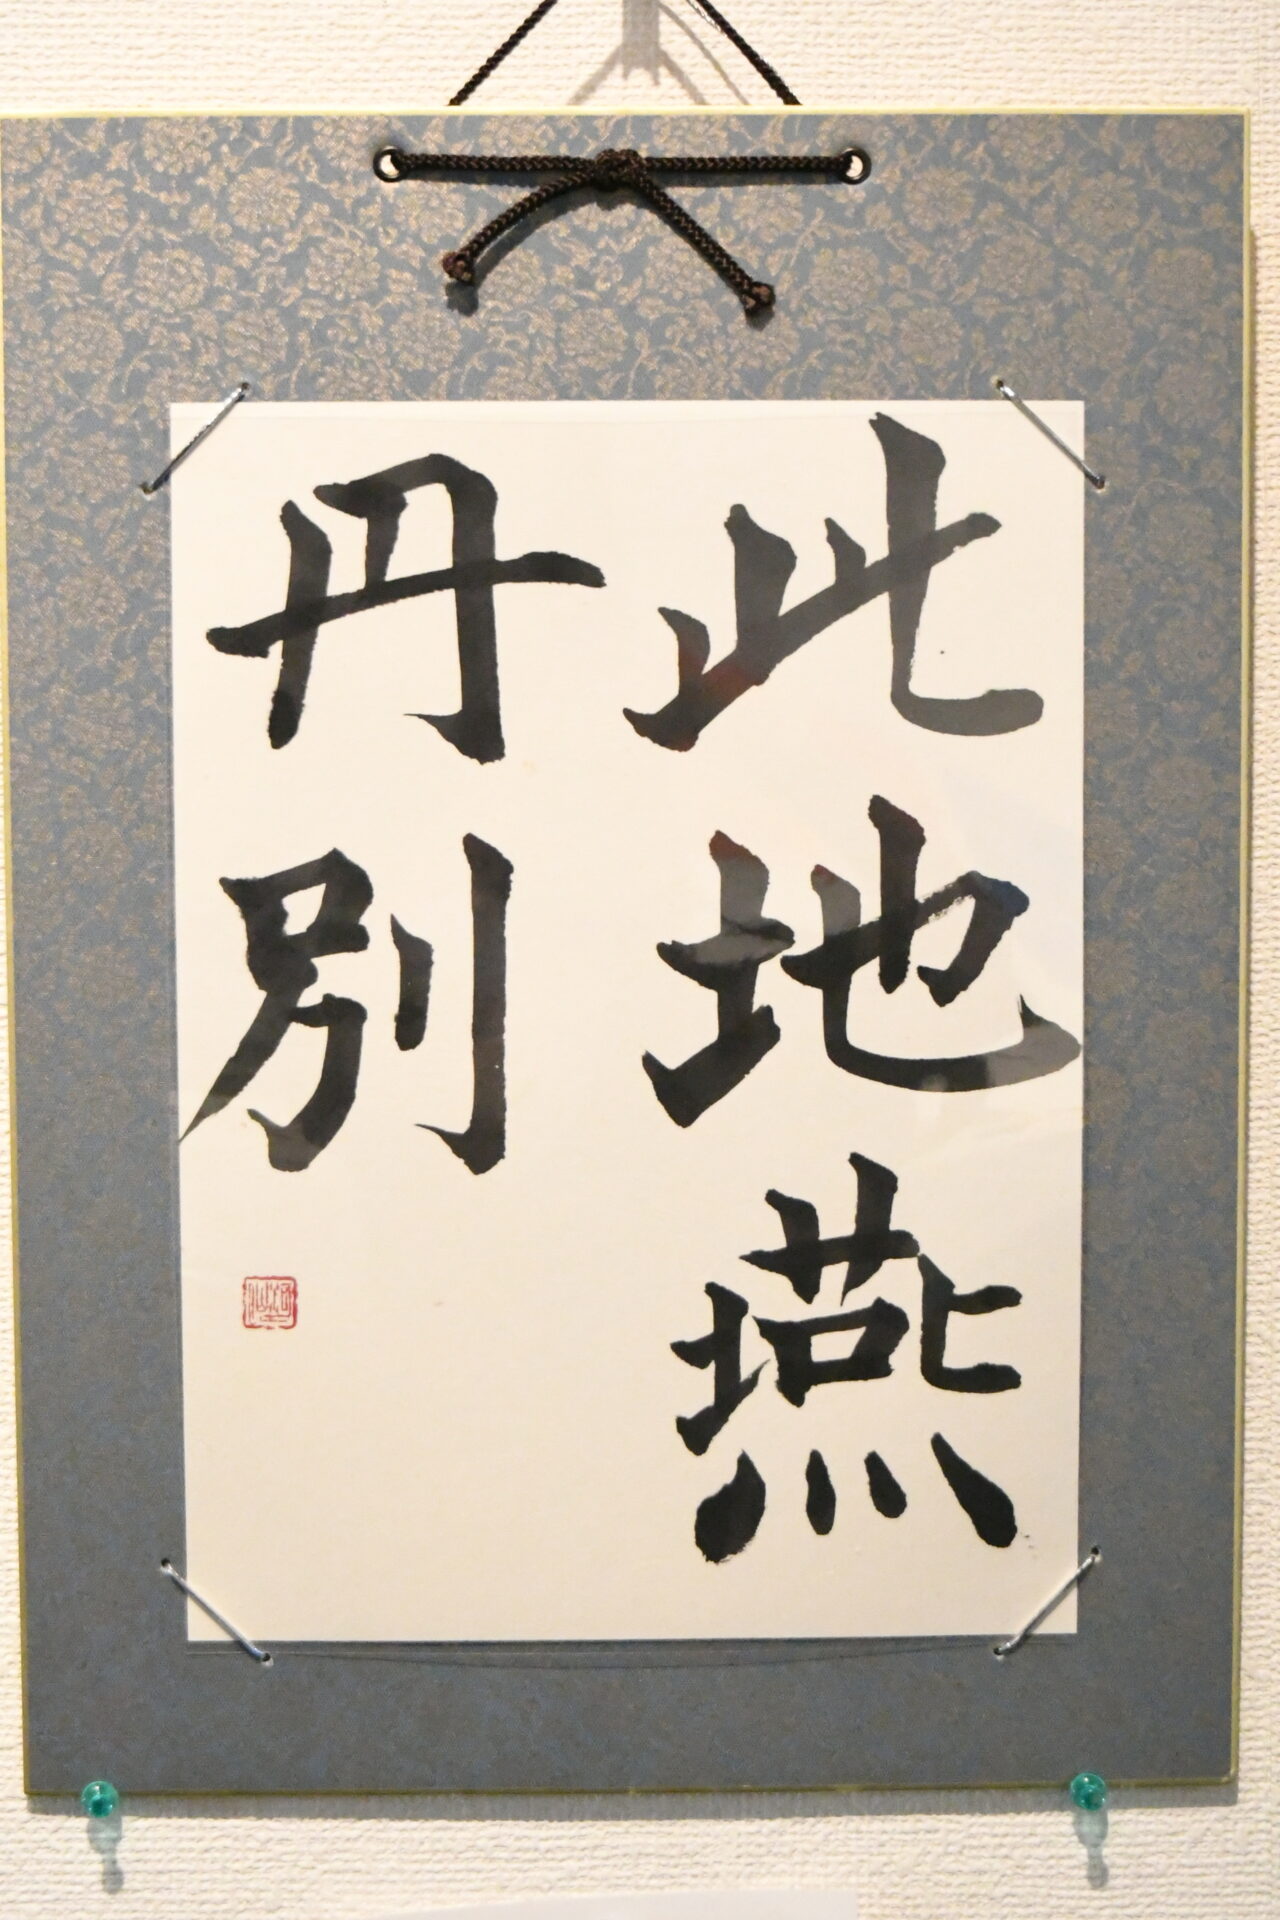 此地燕
丹別